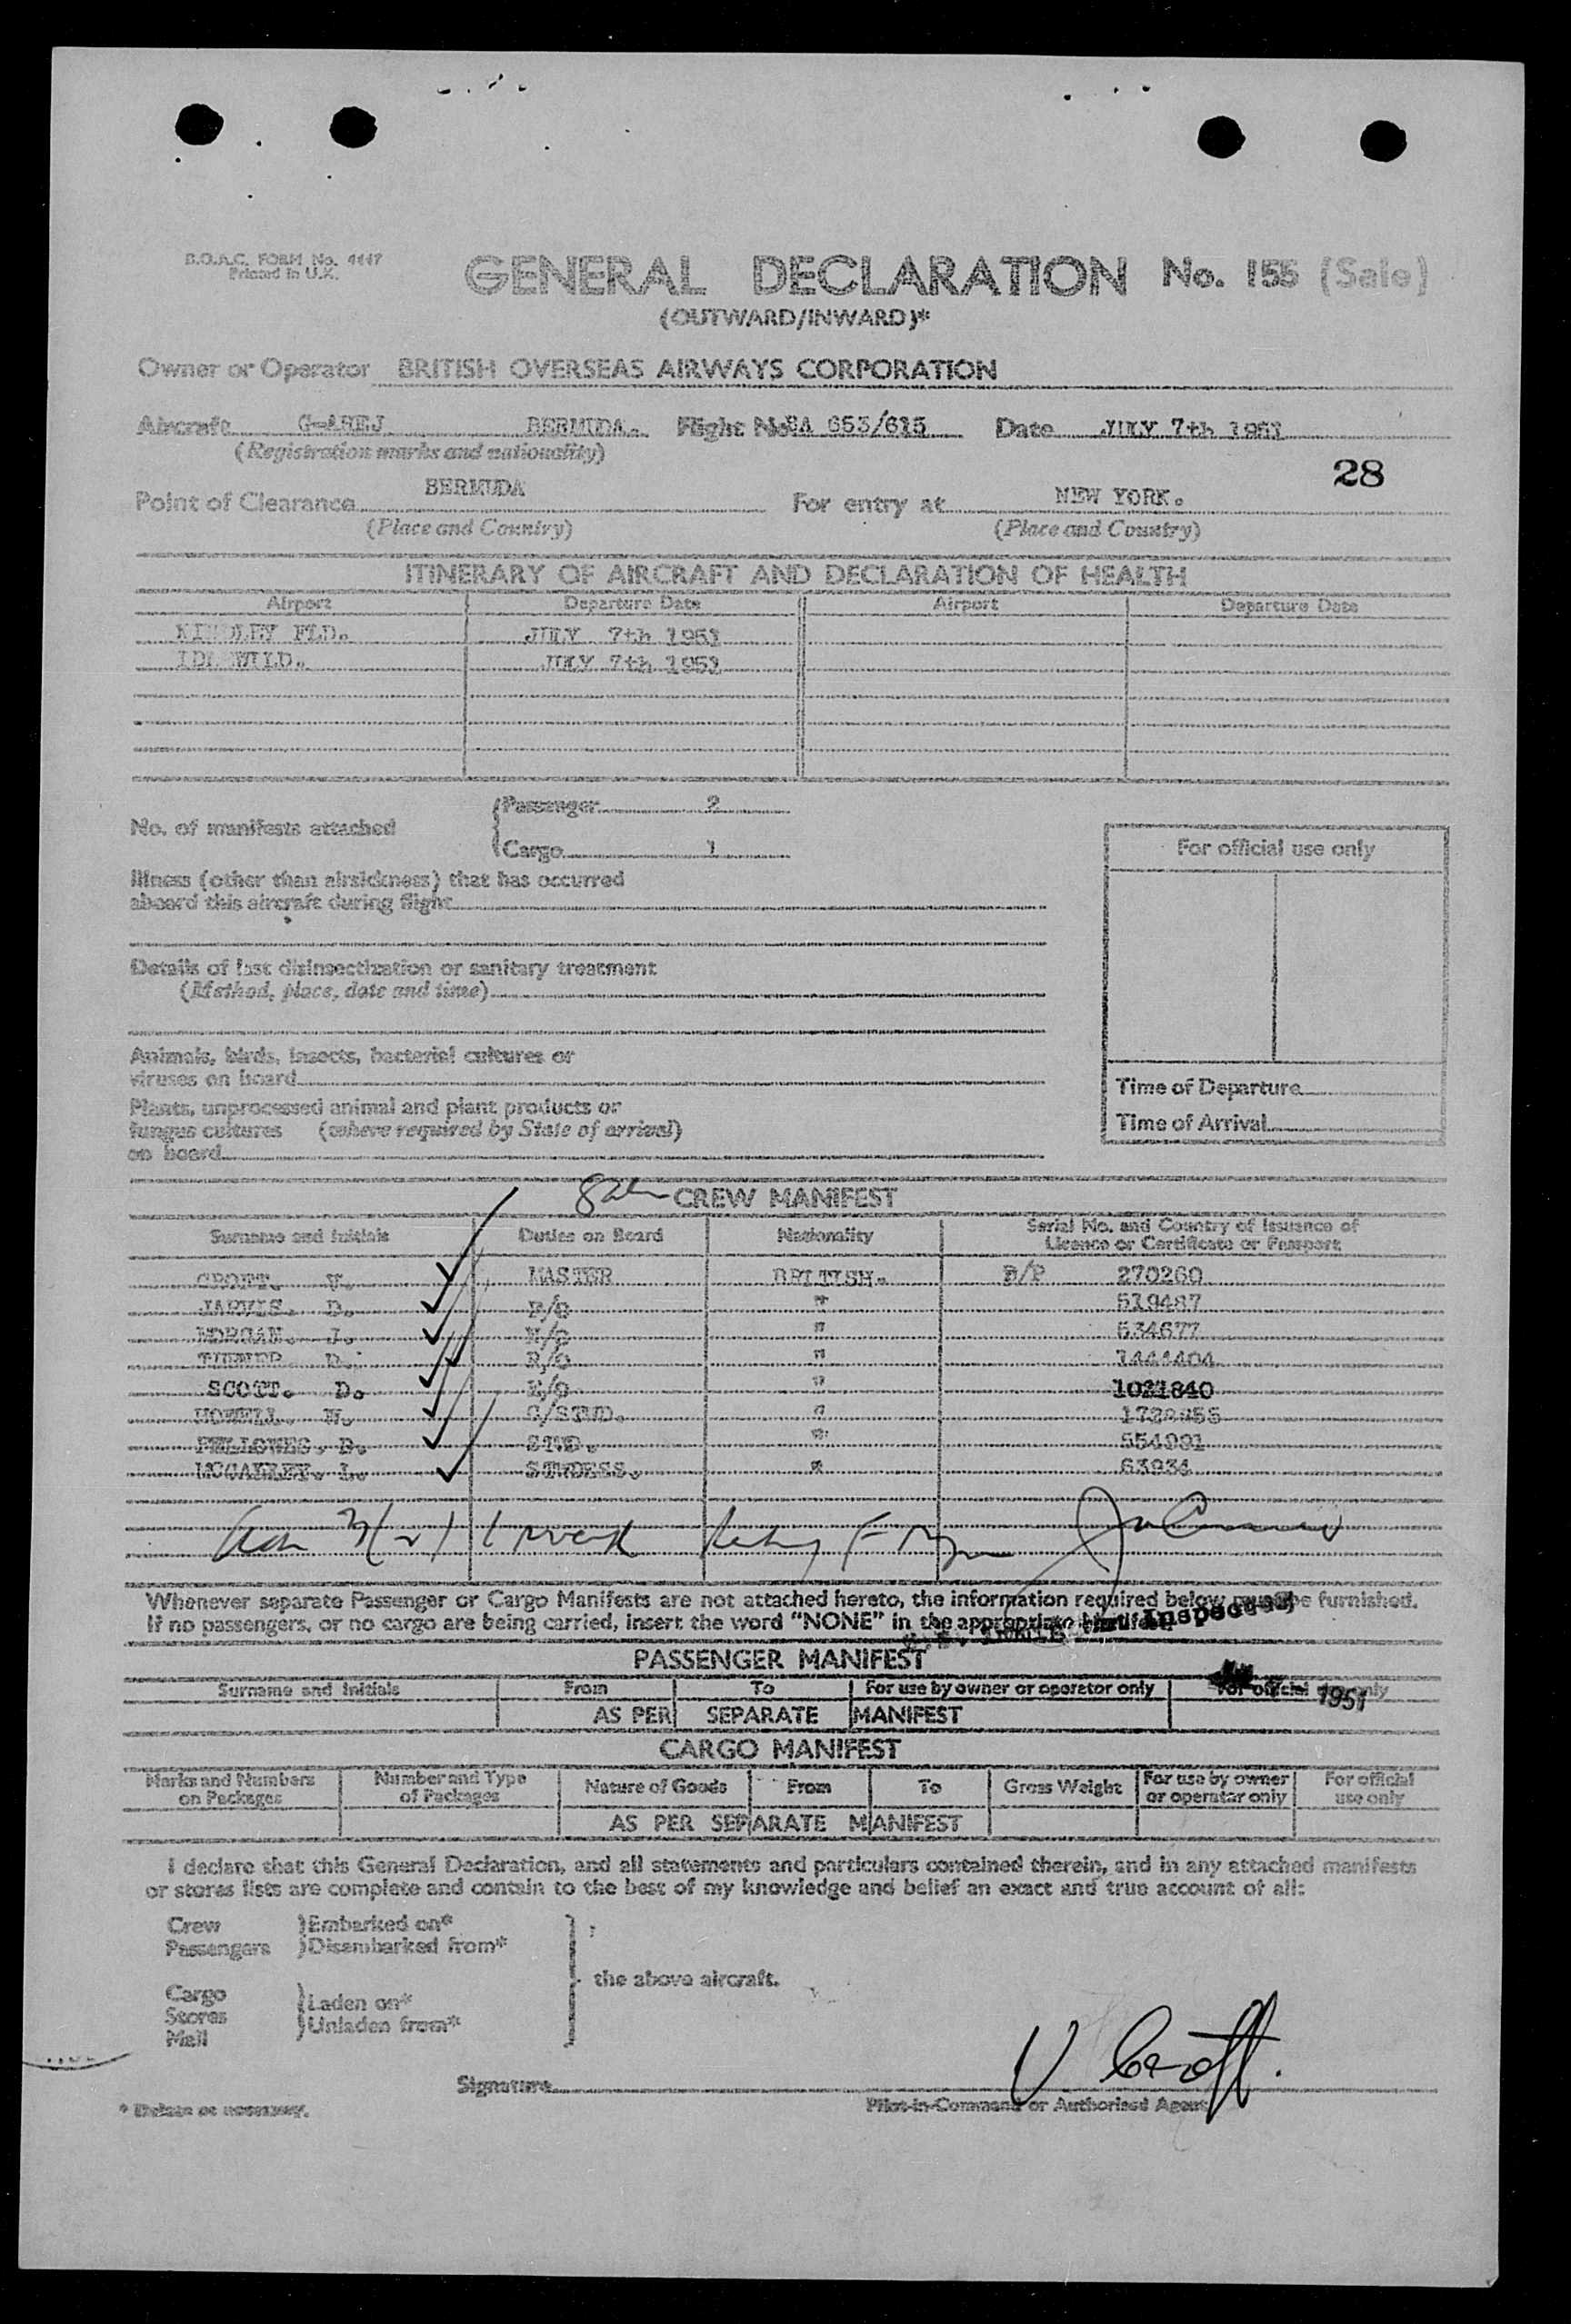 B.O.A.C. FORM No. 4447
Printed in U.K.
GENERAL DECLARATION No. 155 (Sale)
(OUTWARD/INWARD)*
Owner or Operator BRITISH OVERSEAS AIRWAYS CORPORATION
Aircraft BERMUDA. Flight No. BA 653/615 Date JULY 7th 1951
(Registration marks and nationality)
28
Point of Clearance BERMUDA For entry at NEW YORK.
(Place and Country) (Place and Country)
ITINERARY OF AIRCRAFT AND DECLARATION OF HEALTH
Airport Departure Date Airport Departure Date
KINDLEY FLD. JULY 7th 1951
IDLEWILD. JULY 7th 1951
No. of manifests attached Passenger 2
Cargo 1
For official use only
Illness (other than airsickness) that has occurred
aboard this aircraft during flight
Details of last disinsectization or sanitary treatment
(Method, place, date and time)
Animals, birds, insects, bacterial cultures or
viruses on board
Time of Departure
Plants, unprocessed animal and plant products or
fungus cultures (where required by State of arrival)
Time of Arrival
on board
CREW MANIFEST
Surname and Initials Duties on Board Nationality Serial No. and Country of Issuance of
Licence or Certificate or Passport
CROFT. V. MASTER BRITISH. B/P 270260
JARVIS. D. F/O " 519487
MORGAN. J. N/O " 534677
TURNER D. R/O " 1444404
SCOTT. D. E/O " 1021840
HOWELL. W. C/STWD. "
FELLOWES. D. STWD. " 554991
MCCAULEY. L. STWDESS. " 63934
Whenever separate Passenger or Cargo Manifests are not attached hereto, the information required below must be furnished.
If no passengers, or no cargo are being carried, insert the word “NONE” in the appropriate Manifest.
Inspected
PASSENGER MANIFEST
Surname and Initials From To For use by owner or operator only For official use only
1951
AS PER SEPARATE MANIFEST
CARGO MANIFEST
Marks and Numbers on Packages Number and Type of Packages Nature of Goods From To Gross Weight For use by owner or operator only For official use only
AS PER SEPARATE MANIFEST
I declare that this General Declaration, and all statements and particulars contained therein, and in any attached manifests
or stores lists are complete and contain to the best of my knowledge and belief an exact and true account of all:
Crew ) Embarked on*
Passengers ) Disembarked from*
the above aircraft.
Cargo
Stores ) Laden on*
Mail ) Unladen from*
Signature V. Croft.
Pilot-in-Command or Authorised Agent
* Delete as necessary.